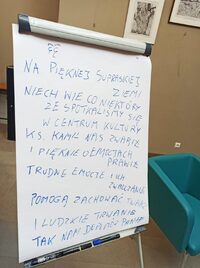 NA PIĘKNEJ SUPRASKIEJ
ZIEMI
NIECH WIE CO NIEKTÓRY
ŻE SPOTKALIŚMY SIĘ
W CENTRUM KULTURY
KS. KAMIL NAS ZWABIŁ
I PIĘKNIE O EMOCJACH
PRAWIŁ
TRUDNE EMOCJE I ICH
ZWALCZANIE
POMOGĄ ZACHOWAĆ TWARZ
I LUDZKIE TRWANIE
TAK NAM